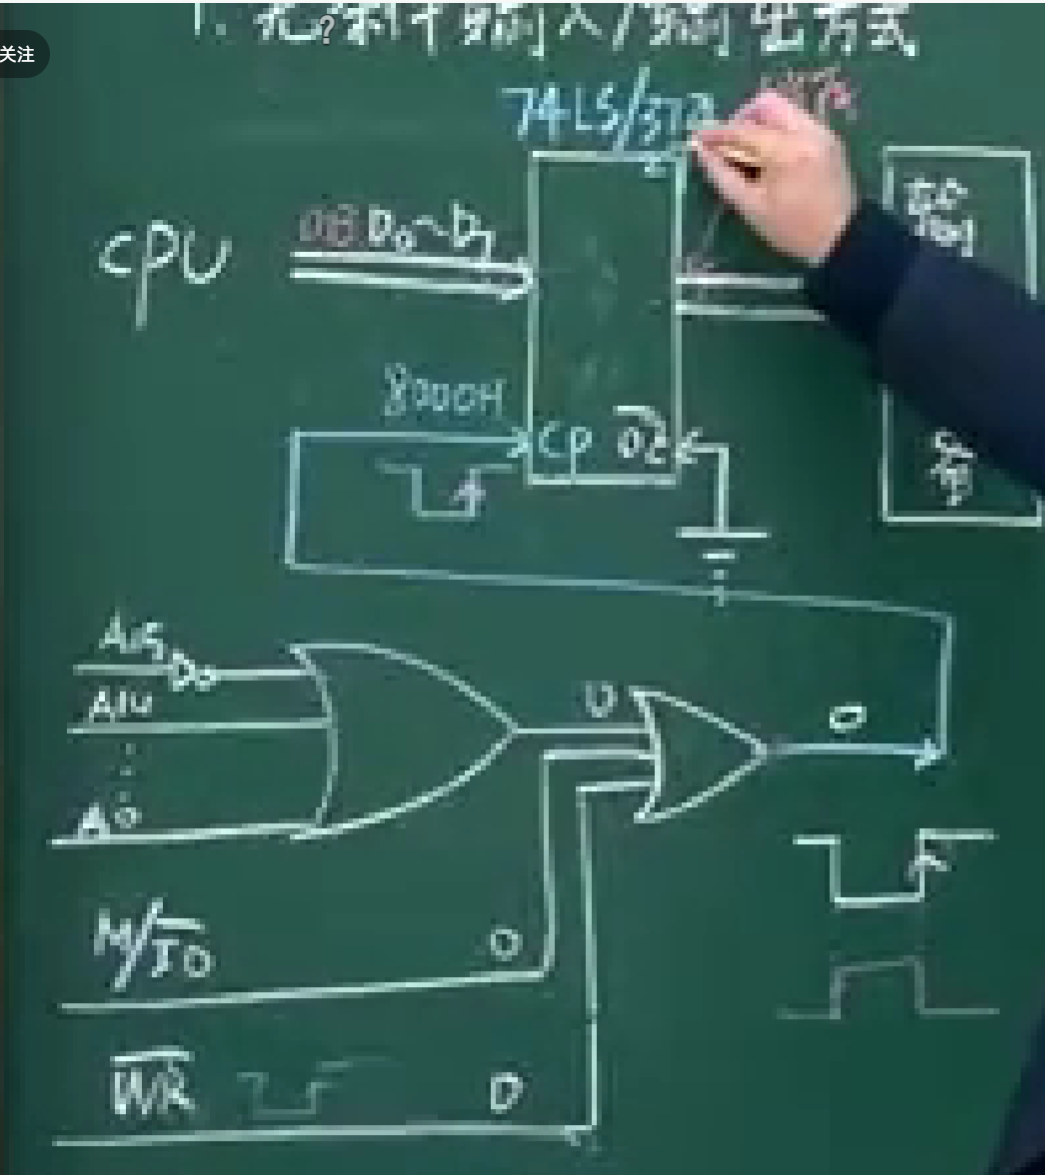 关注
1. 无条件输入/输出方式
74LS/372
CPU
DB D₀~D₇
输
8000H
CP
O̅C̅
A15
A14
A0
0
0
M/I̅O̅
0
W̅R̅
0